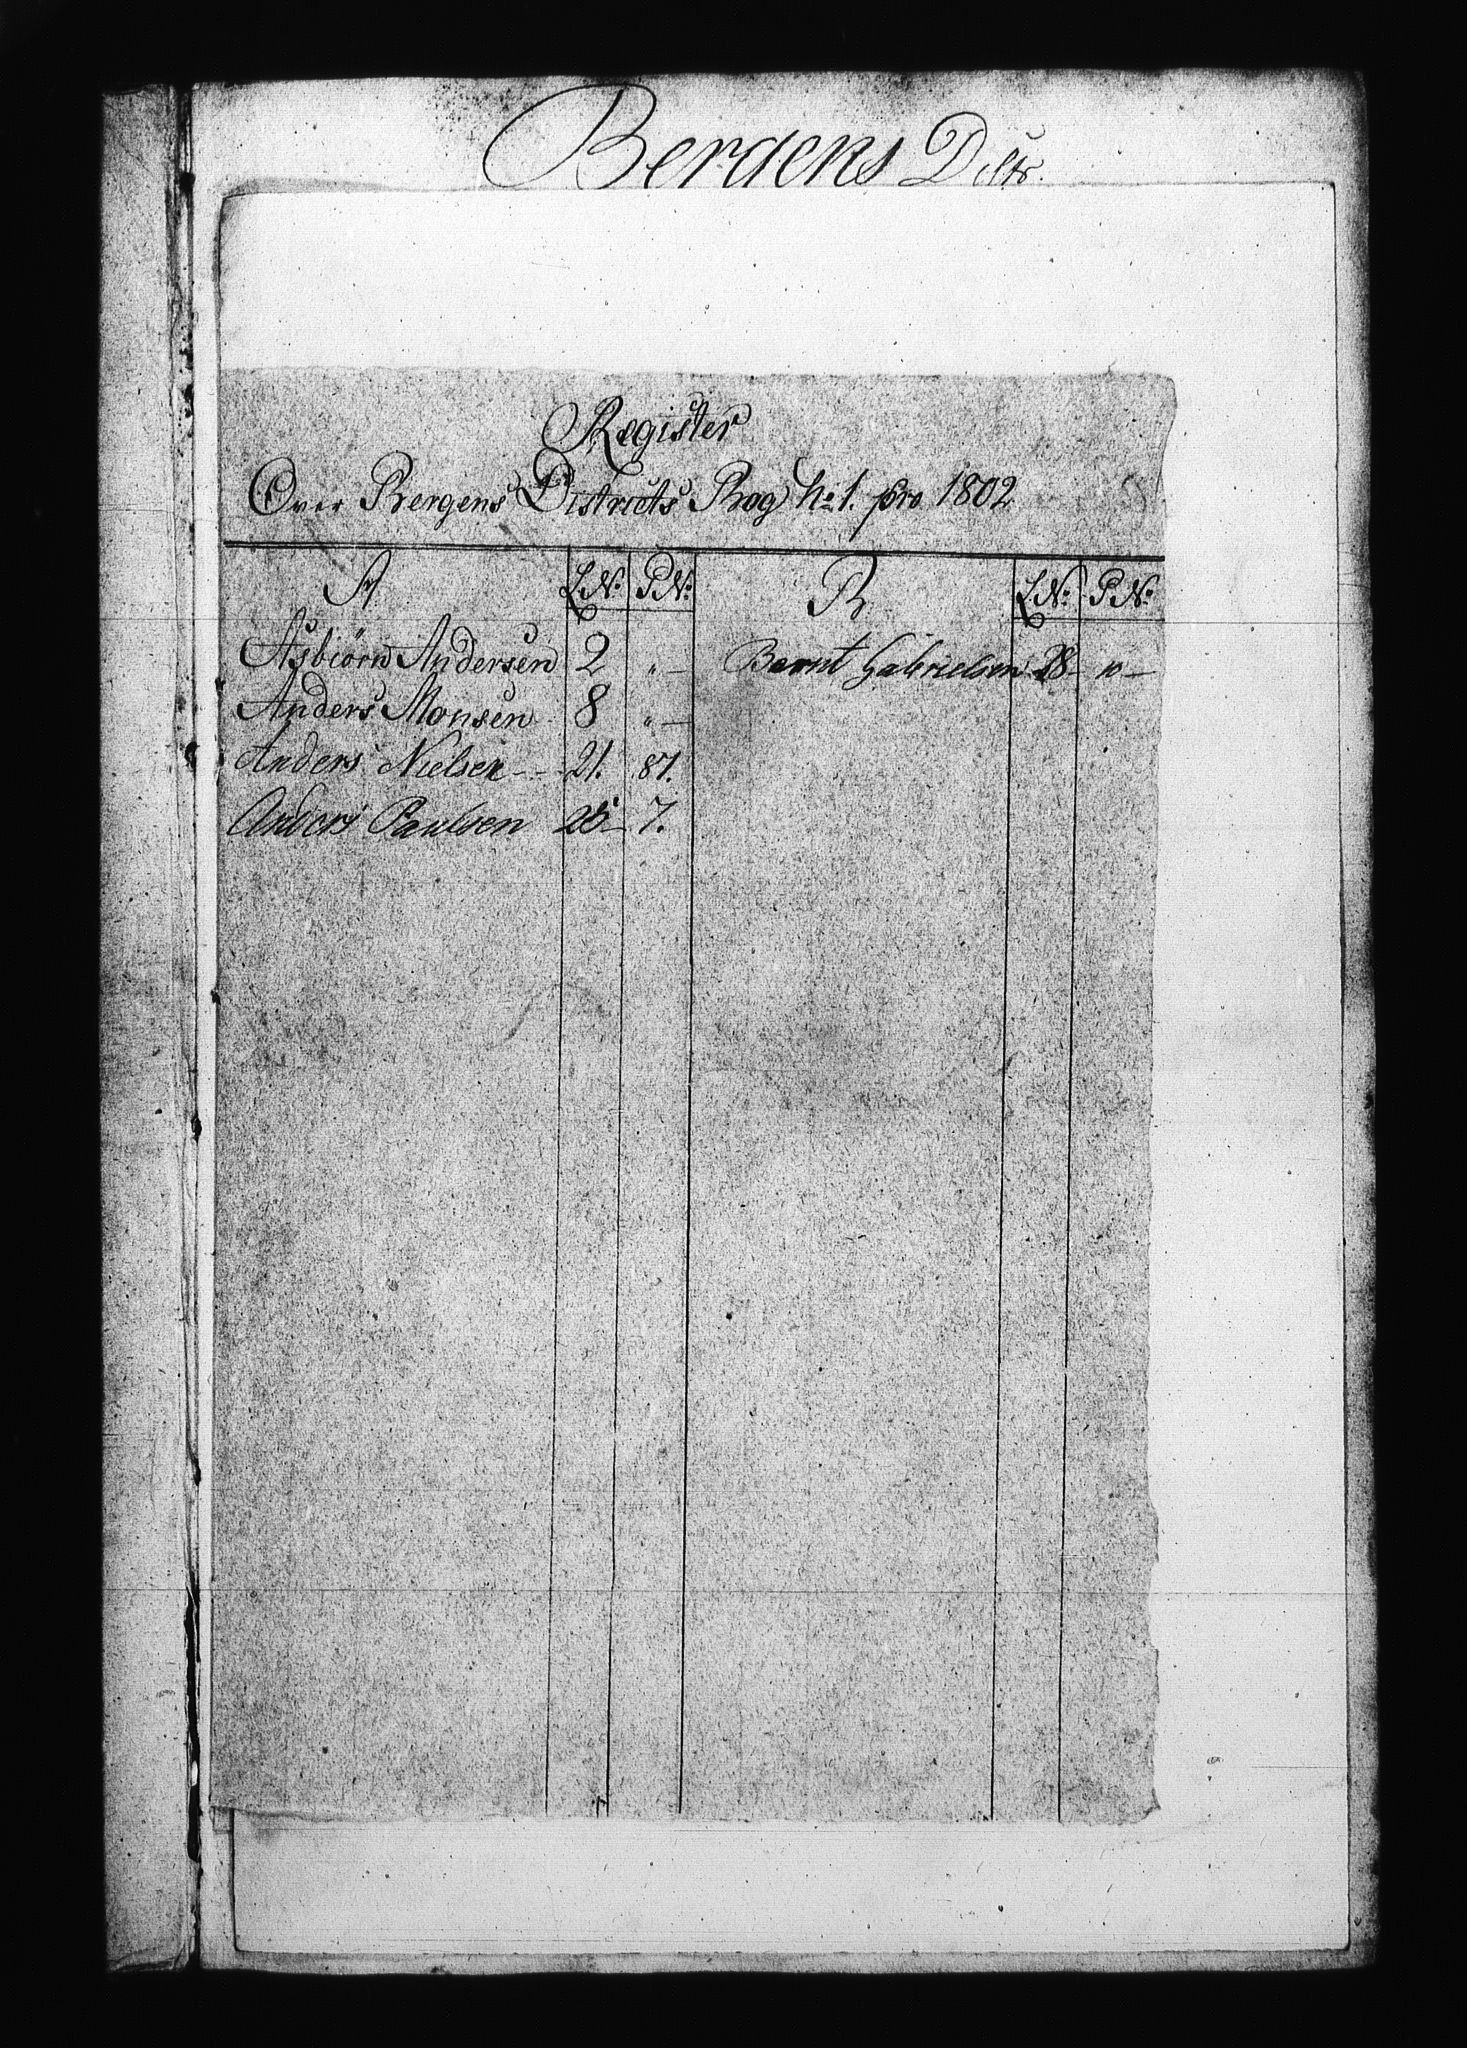 Bergens Distr.
Register
Over Bergens Districts Bog No 1. pro 1802
A L No: P No: B L No: P No:
Asbiörn Andersen 2 " — Bernt Gabrielsen 28 — 10 —
Anders Monsen 8 " —
Anders Nielsen - - - 21. 87.
Anders Paulsen 25 — 7.